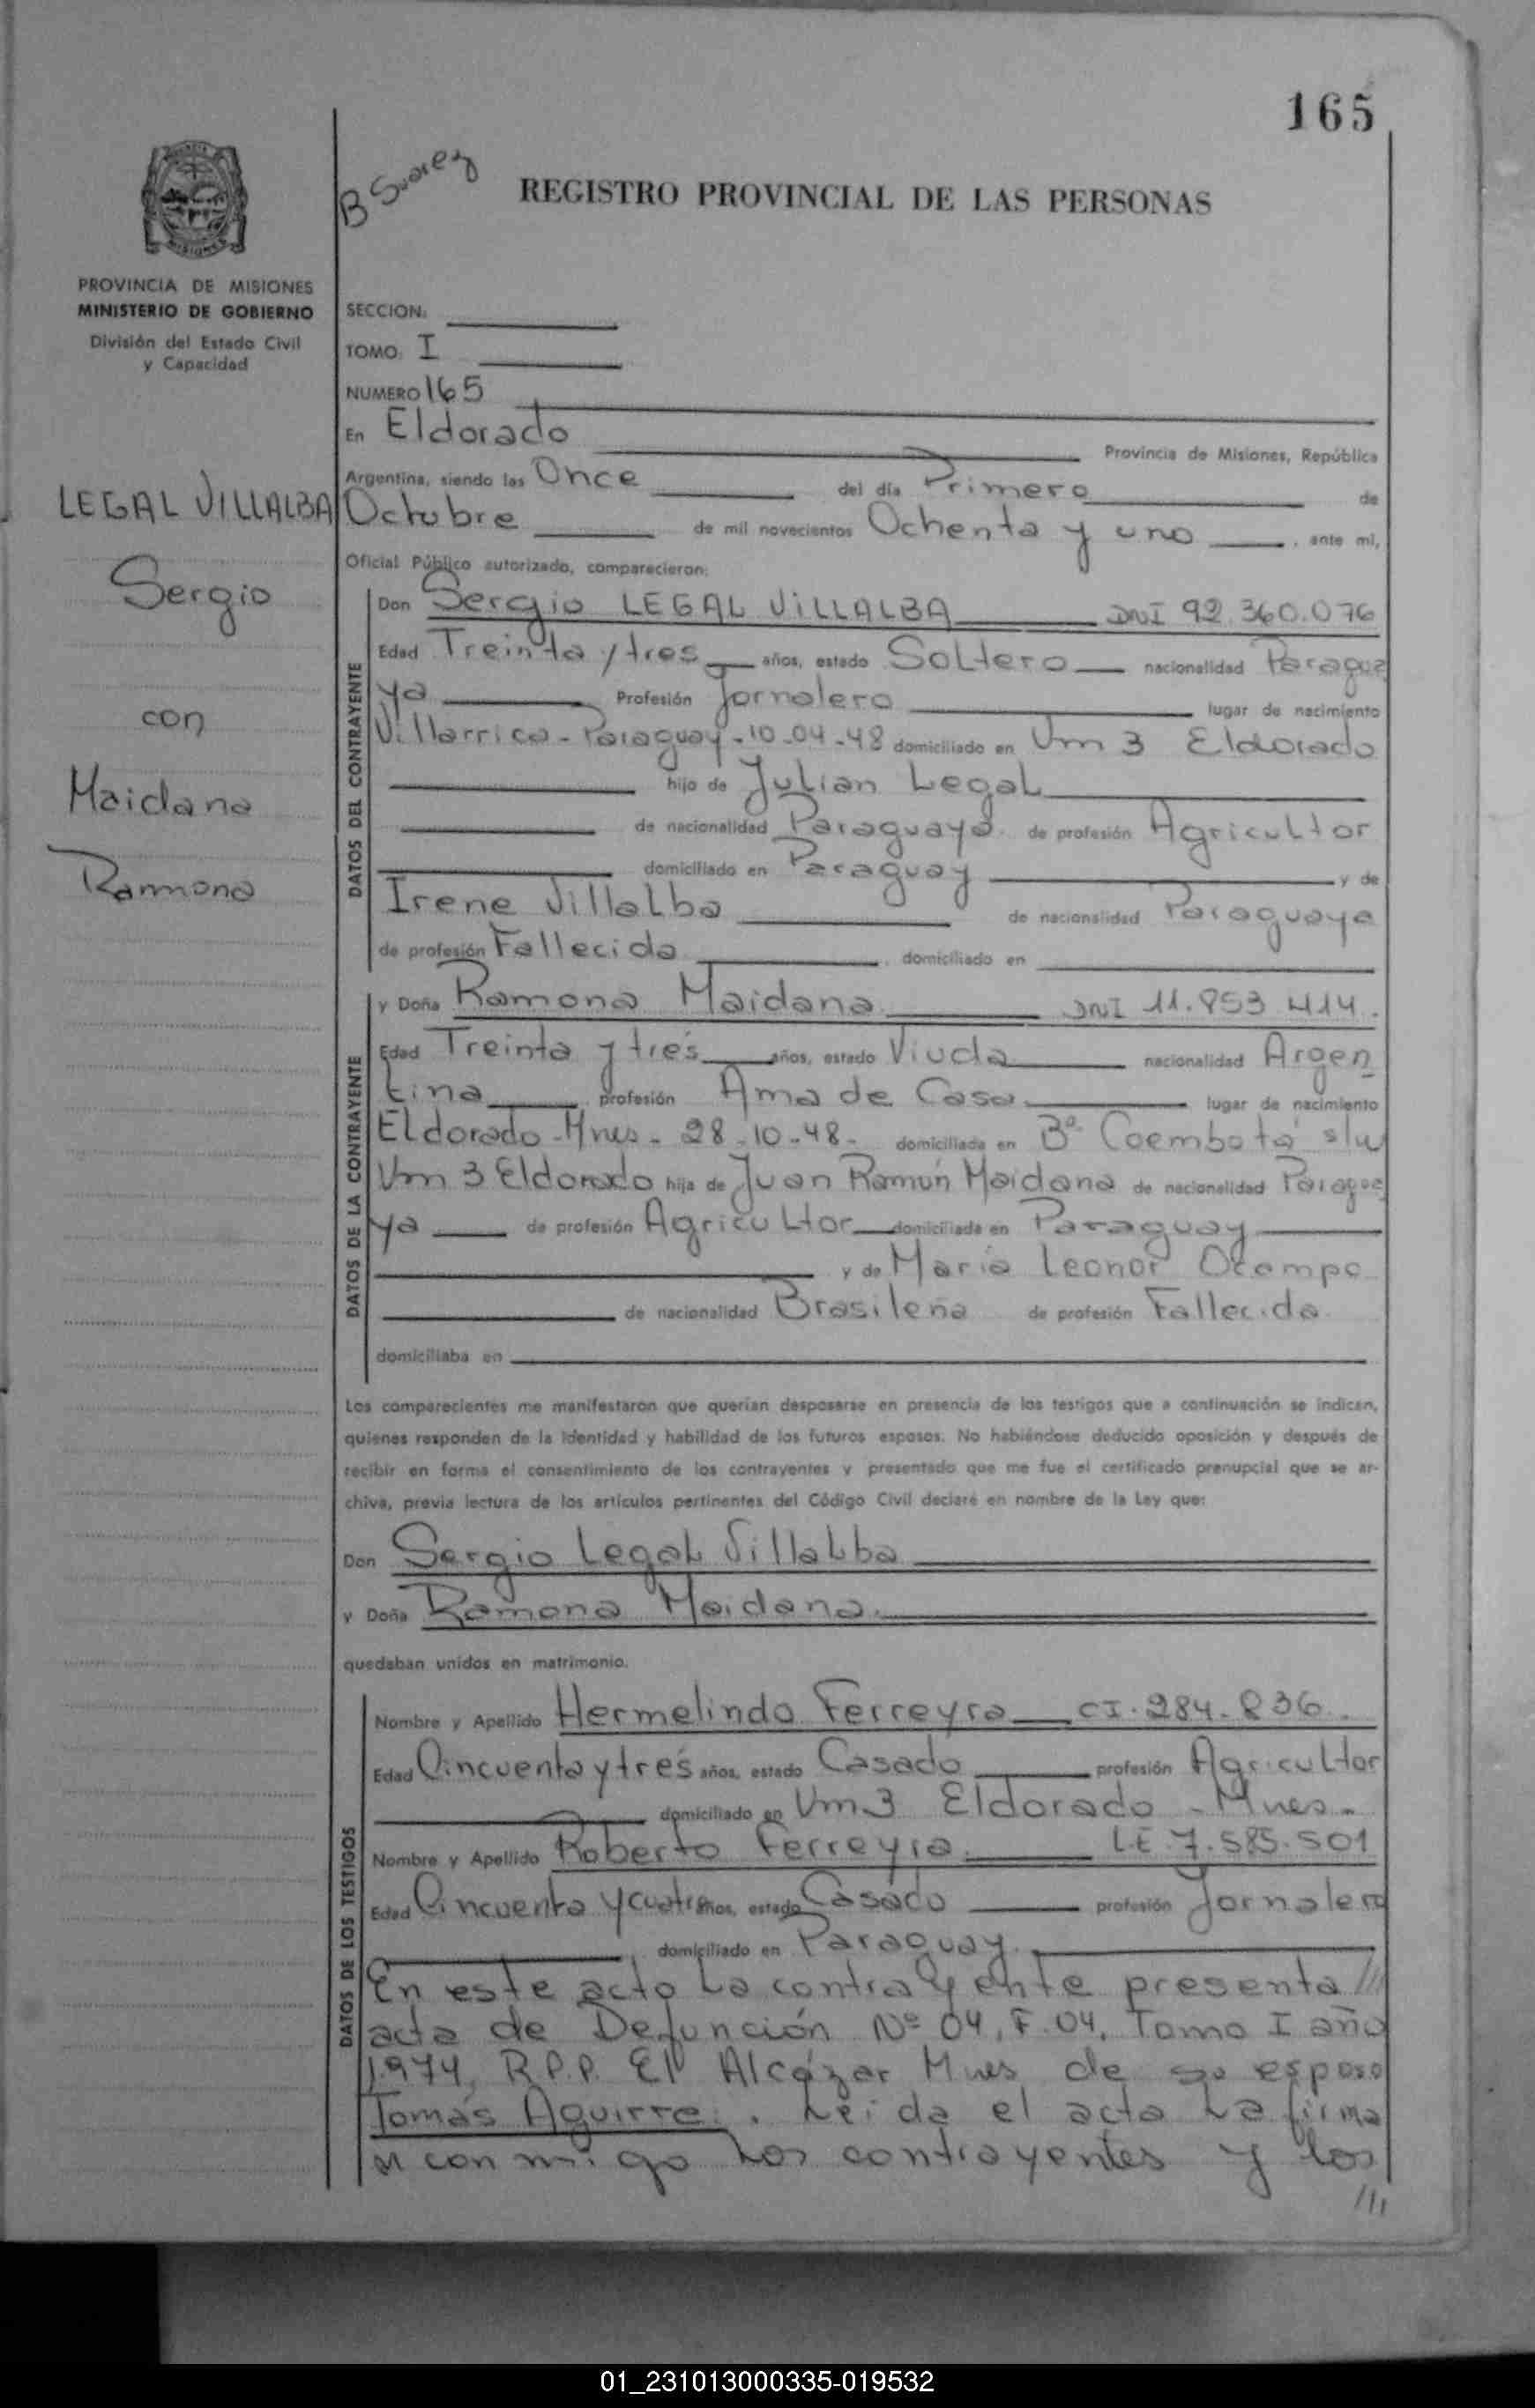 165
B Suarez
REGISTRO PROVINCIAL DE LAS PERSONAS
PROVINCIA DE MISIONES
MINISTERIO DE GOBIERNO
División del Estado Civil
y Capacidad
LEGAL VILLALBA
Sergio
con
Maidana
Ramona
SECCION:
TOMO: I
NUMERO 165
En Eldorado Provincia de Misiones, República
Argentina, siendo las Once del día Primero de
Octubre de mil novecientos Ochenta y uno, ante mi,
Oficial Público autorizado, comparecieron:
DATOS DEL CONTRAYENTE
Don Sergio LEGAL VILLALBA DNI 92.360.076
Edad Treinta y tres años, estado Soltero nacionalidad Paragua
ya Profesión Jornalero lugar de nacimiento
Villarrica - Paraguay - 10-04-48 domiciliado en Vm 3 Eldorado
hijo de Julian Legal
de nacionalidad Paraguaya de profesión Agricultor
domiciliado en Paraguay y de
Irene Villalba de nacionalidad Paraguaya
de profesión Fallecida, domiciliado en
DATOS DE LA CONTRAYENTE
y Doña Ramona Maidana DNI 11.853.414.
Edad Treinta y tres años, estado Viuda nacionalidad Argen
tina profesión Ama de Casa lugar de nacimiento
Eldorado - Mnes - 28-10-48- domiciliada en Bº Coembotá s/n
Vm 3 Eldorado hija de Juan Ramón Maidana de nacionalidad Paragua
ya de profesión Agricultor domiciliada en Paraguay
y de María Leonor Ocampo
de nacionalidad Brasileña de profesión Fallecida.
domiciliaba en
Los comparecientes me manifestaron que querían desposarse en presencia de los testigos que a continuación se indican,
quienes responden de la identidad y habilidad de los futuros esposos. No habiéndose deducido oposición y después de
recibir en forma el consentimiento de los contrayentes y presentado que me fue el certificado prenupcial que se ar-
chiva, previa lectura de los artículos pertinentes del Código Civil declaré en nombre de la Ley que:
Don Sergio Legal Villalba
y Doña Ramona Maidana.
quedaban unidos en matrimonio.
DATOS DE LOS TESTIGOS
Nombre y Apellido Hermelindo Ferreyra CI. 284.836.
Edad Cincuenta y tres años, estado Casado profesión Agricultor
domiciliado en Vm 3 Eldorado - Mnes.-
Nombre y Apellido Roberto Ferreyra. L.E 7.585.501
Edad Cincuenta y cuatro años, estado Casado profesión Jornalero
, domiciliado en Paraguay.
En este acto La contrayente presenta ///
acta de Defunción Nº 04, F. 04, Tomo I año
1.974, R.P.P. El Alcázar Mnes de su esposo
Tomás Aguirre. . Leida el acta La firma
n conmigo Los contrayentes y los
///
01_231013000335-019532